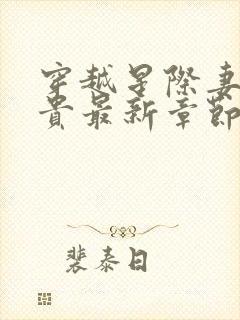 穿越星際妻
貴最新章節
裴泰日